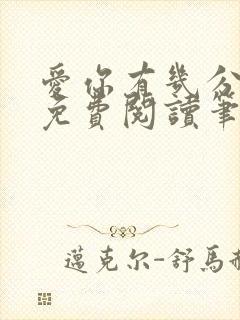 愛你有幾分
免費閱讀筆
邁克尔-舒馬赫